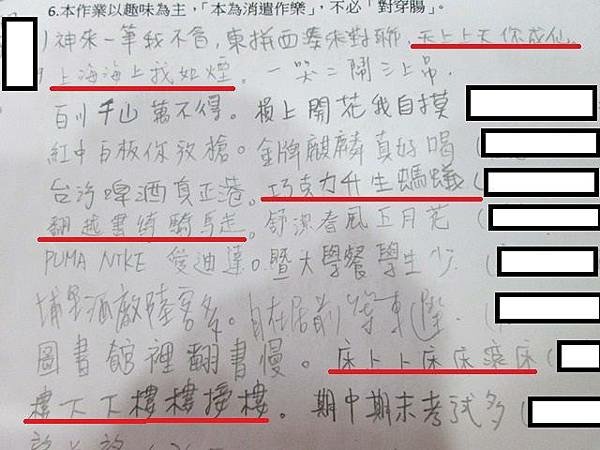 6.本作業以趣味為主,「本為消遣作樂」,不必「對穿腸」。
神來一筆我不會,東拼西湊來對聯,天上上天你成仙,
上海海上我如煙。一哭二鬧三上吊,
百川千山萬不得。槓上開花我自摸
紅中白板你放槍。金牌麒麟真好喝
台灣啤酒真正港。巧克力升生螞蟻
翻越書綺騎馬走。舒潔春風五月花
PUMA NIKE 愛迪達。暨大學餐學生少
埔里酒廠陸客多。自在居前等車
圖書館裡翻書慢。床卜卜床床 床
樓下下樓樓接樓。期中期末考試多